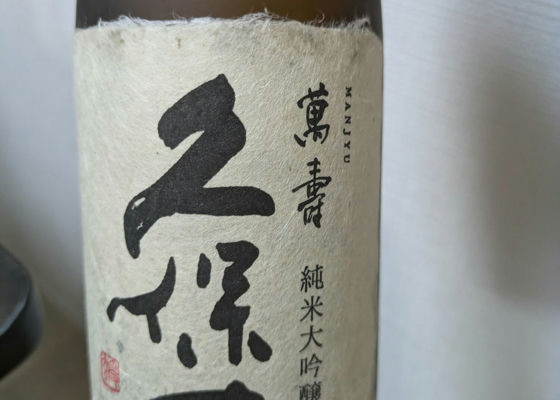 MANJYU
萬壽
純米大吟醸
久保